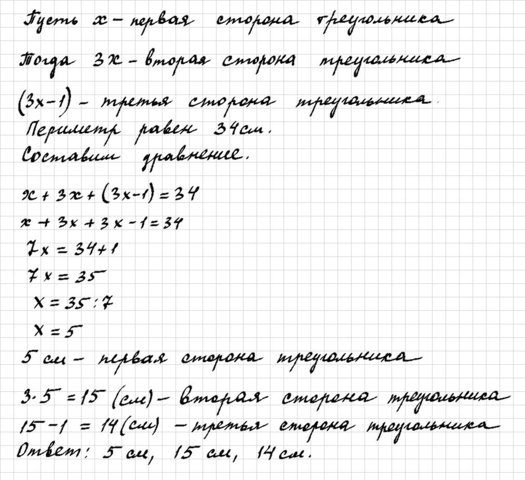 Пусть x - первая сторона треугольника
Тогда 3x - вторая сторона треугольника
(3x-1) - третья сторона треугольника.
Периметр равен 34 см.
Составим уравнение.
x + 3x + (3x-1) = 34
x + 3x + 3x - 1 = 34
7x = 34+1
7x = 35
x = 35 : 7
x = 5
5 см - первая сторона треугольника
3·5 = 15 (см) - вторая сторона треугольника
15-1 = 14 (см) - третья сторона треугольника
Ответ: 5 см, 15 см, 14 см.